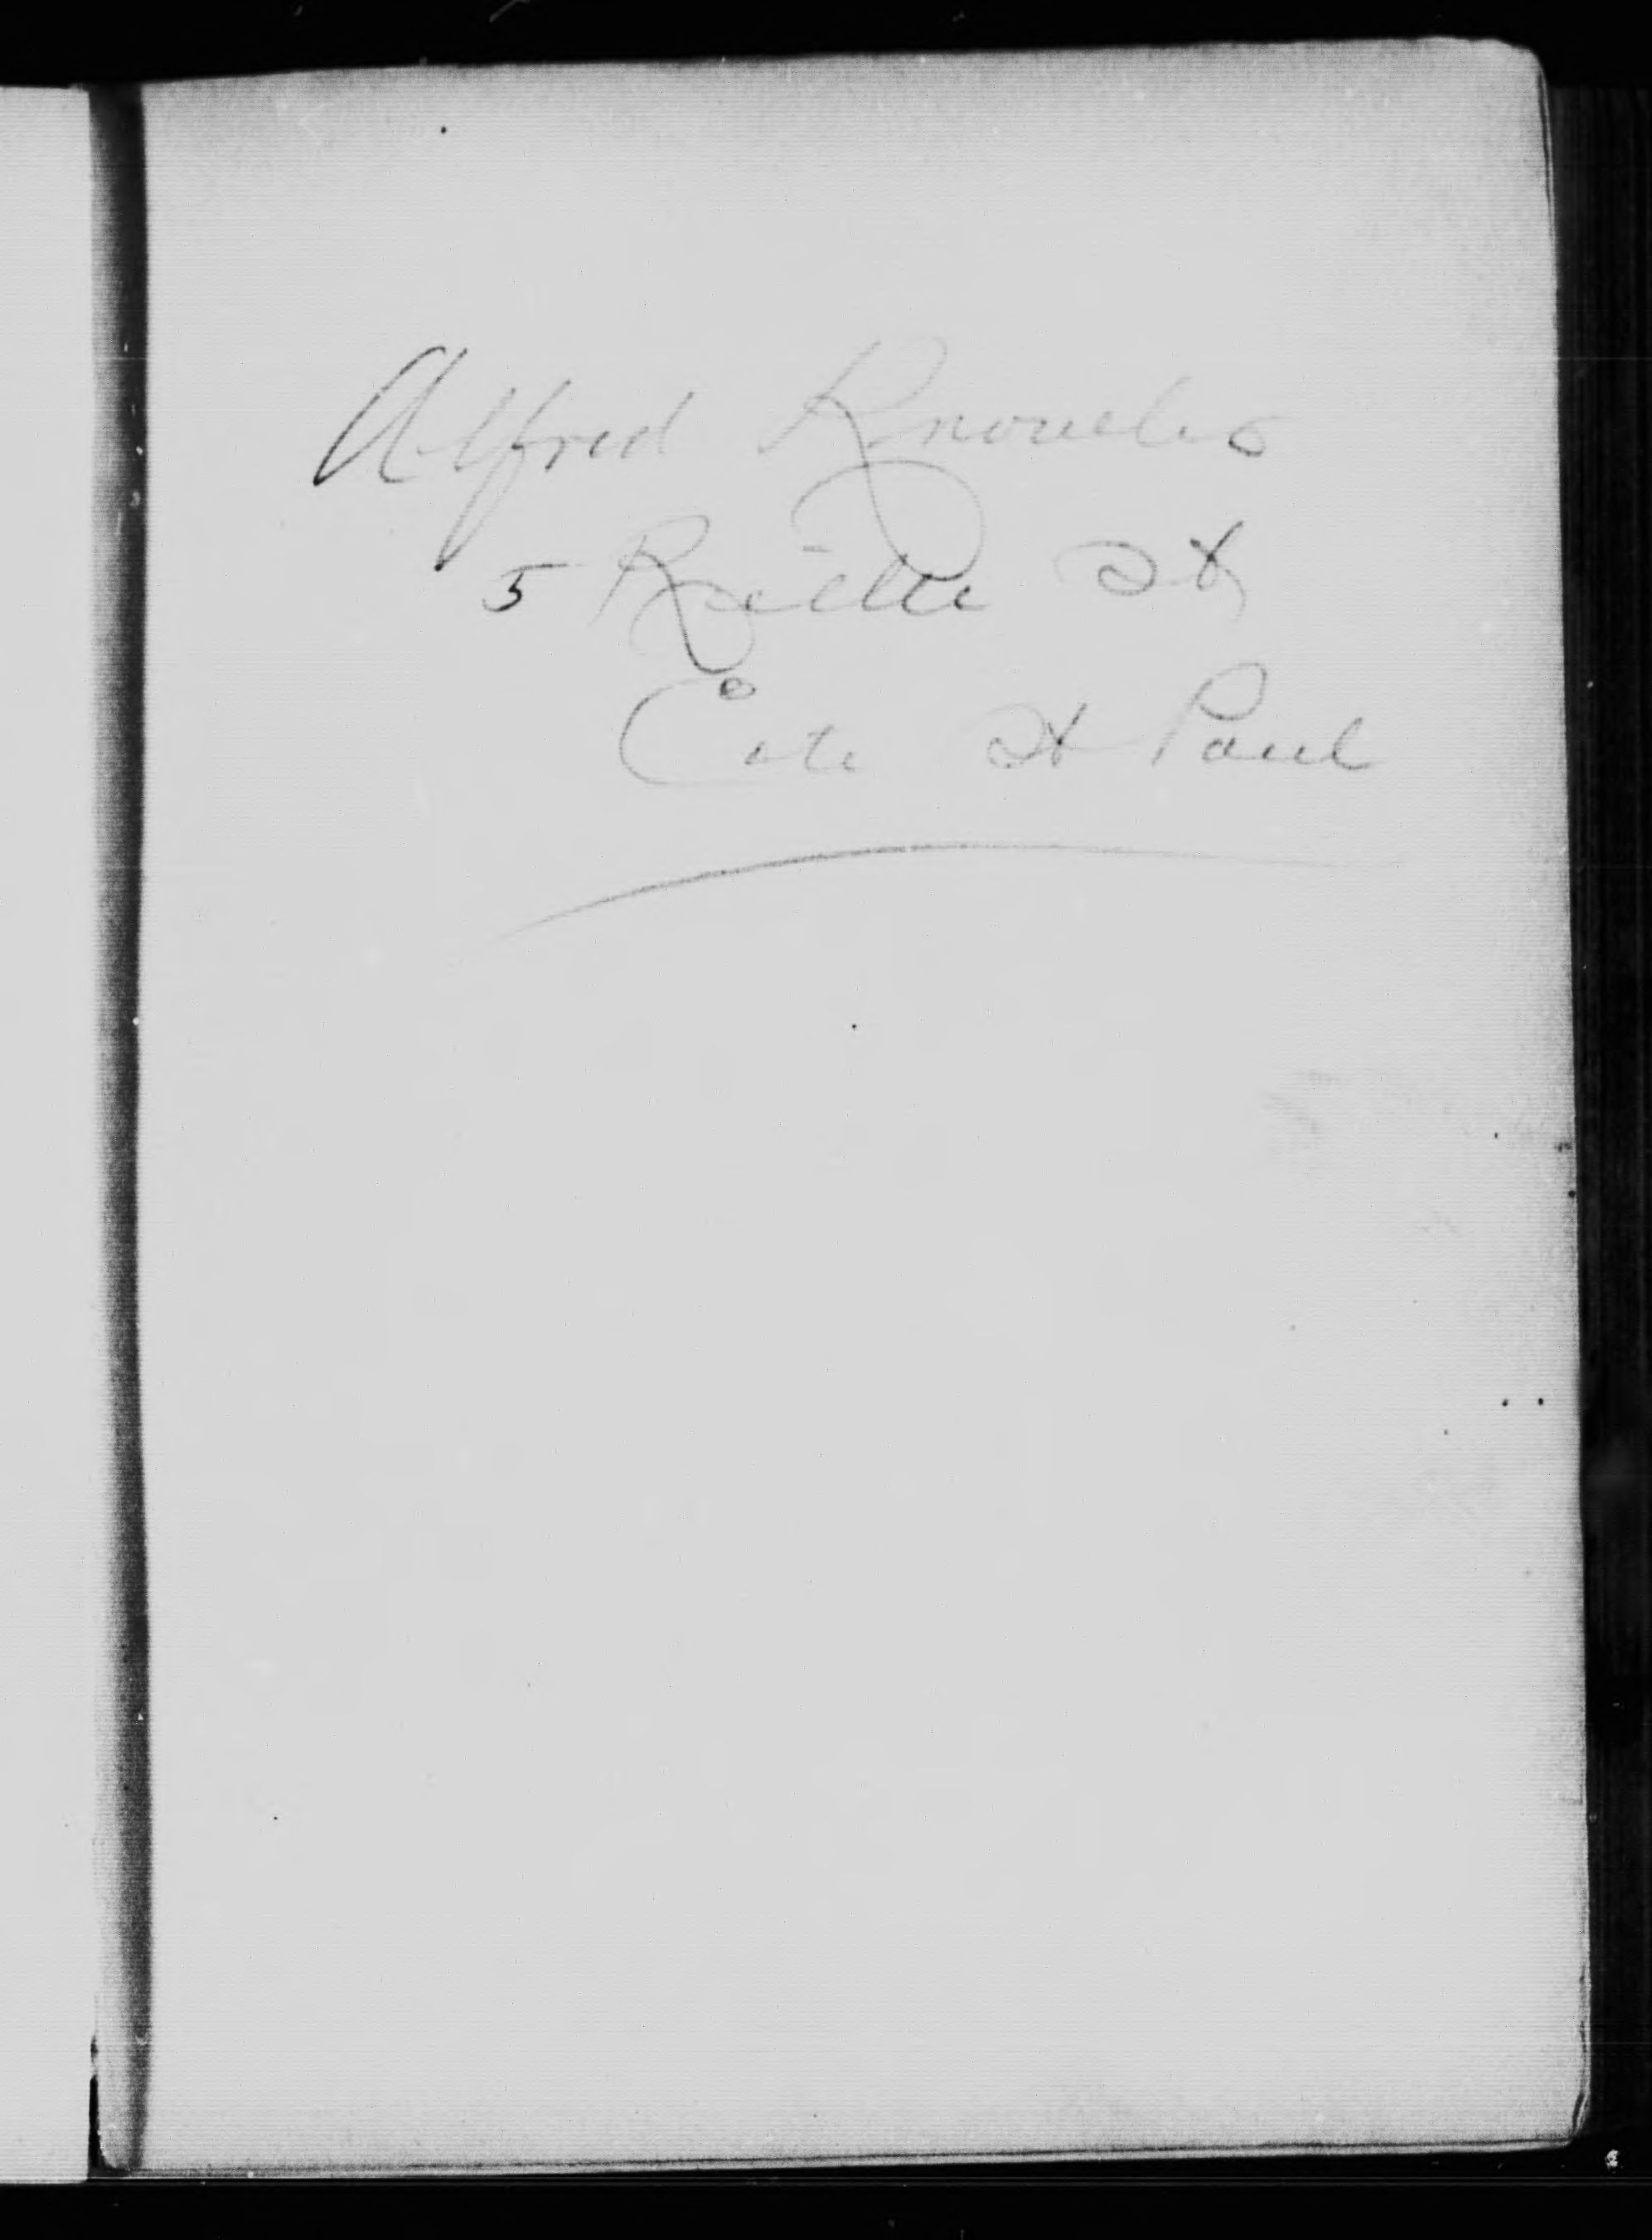 Alfred Knowles
5 Rielle St
Cote St Paul